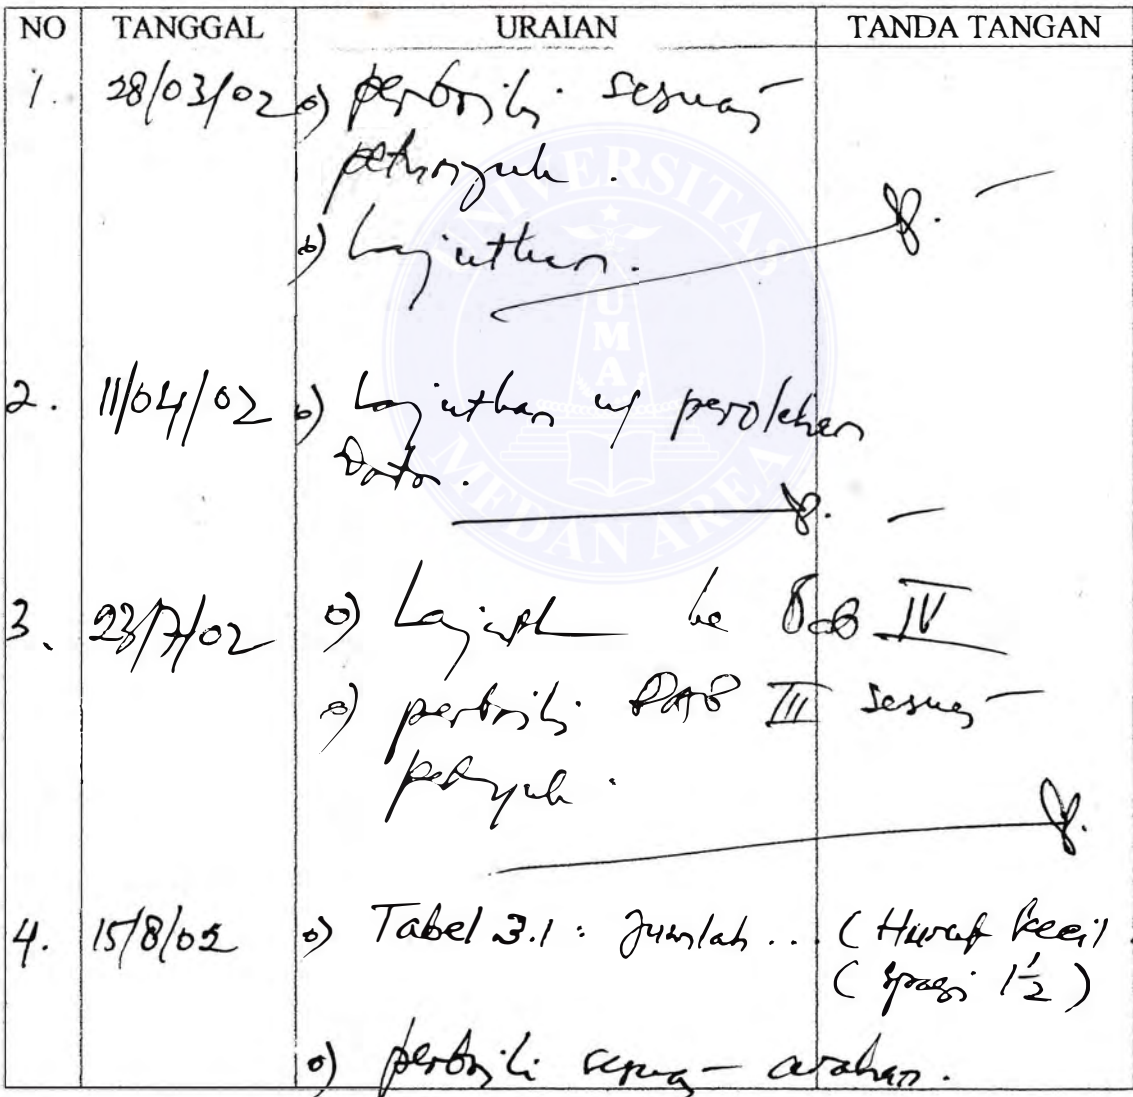 NO TANGGAL URAIAN TANDA TANGAN
1. 28/03/02 o) perbaiki sesuai
petunjuk.
o) Lanjutkan.
2. 11/04/02 o) Lanjutkan perolehan
Data.
3. 23/7/02 o) Lanjutkan ke Bab IV
o) perbaiki BAB III sesuai
petunjuk.
4. 15/8/02 o) Tabel 3.1 : Jumlah ... (Huruf kecil
(spasi 1 1/2)
o) perbaiki sesuai arahan.
UNIVERSITAS
UMA
MEDAN AREA